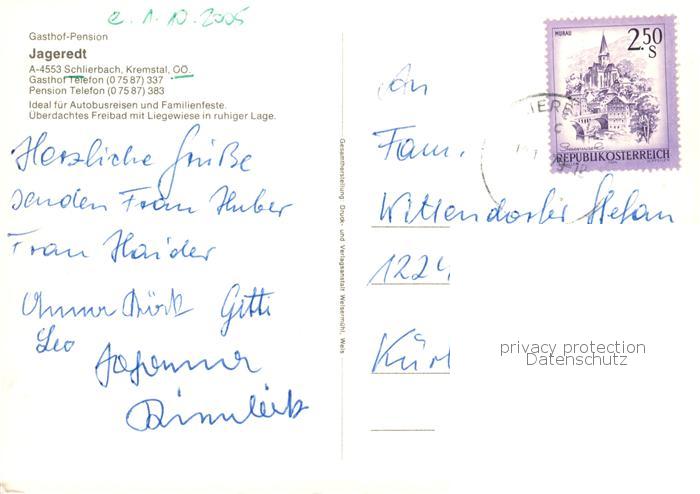 e. 1. 10. 2005
Gasthof-Pension
Jageredt
A-4553 Schlierbach, Kremstal, OO.
Gasthof Telefon (0 75 87) 337
Pension Telefon (0 75 87) 383
Ideal für Autobusreisen und Familienfeste.
Überdachtes Freibad mit Liegewiese in ruhiger Lage.
Herzliche Grüße
senden Frau Huber
Frau Haider
Gitti
Leo
Gesamtherstellung: Druck- und Verlagsanstalt Welsermühl, Wels
MURAU
2.50
S
REPUBLIK ÖSTERREICH
An
Fam.
Stefan
1224,
privacy protection
Datenschutz